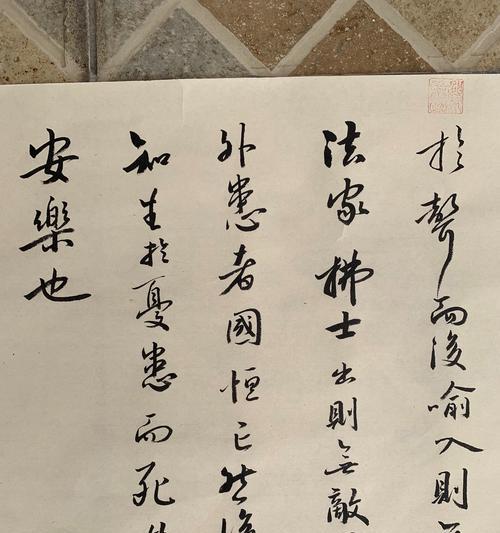 於聲而後喻入則無
法家拂士出則無敵
外患者國恒亡然後
知生於憂患而死
安樂也